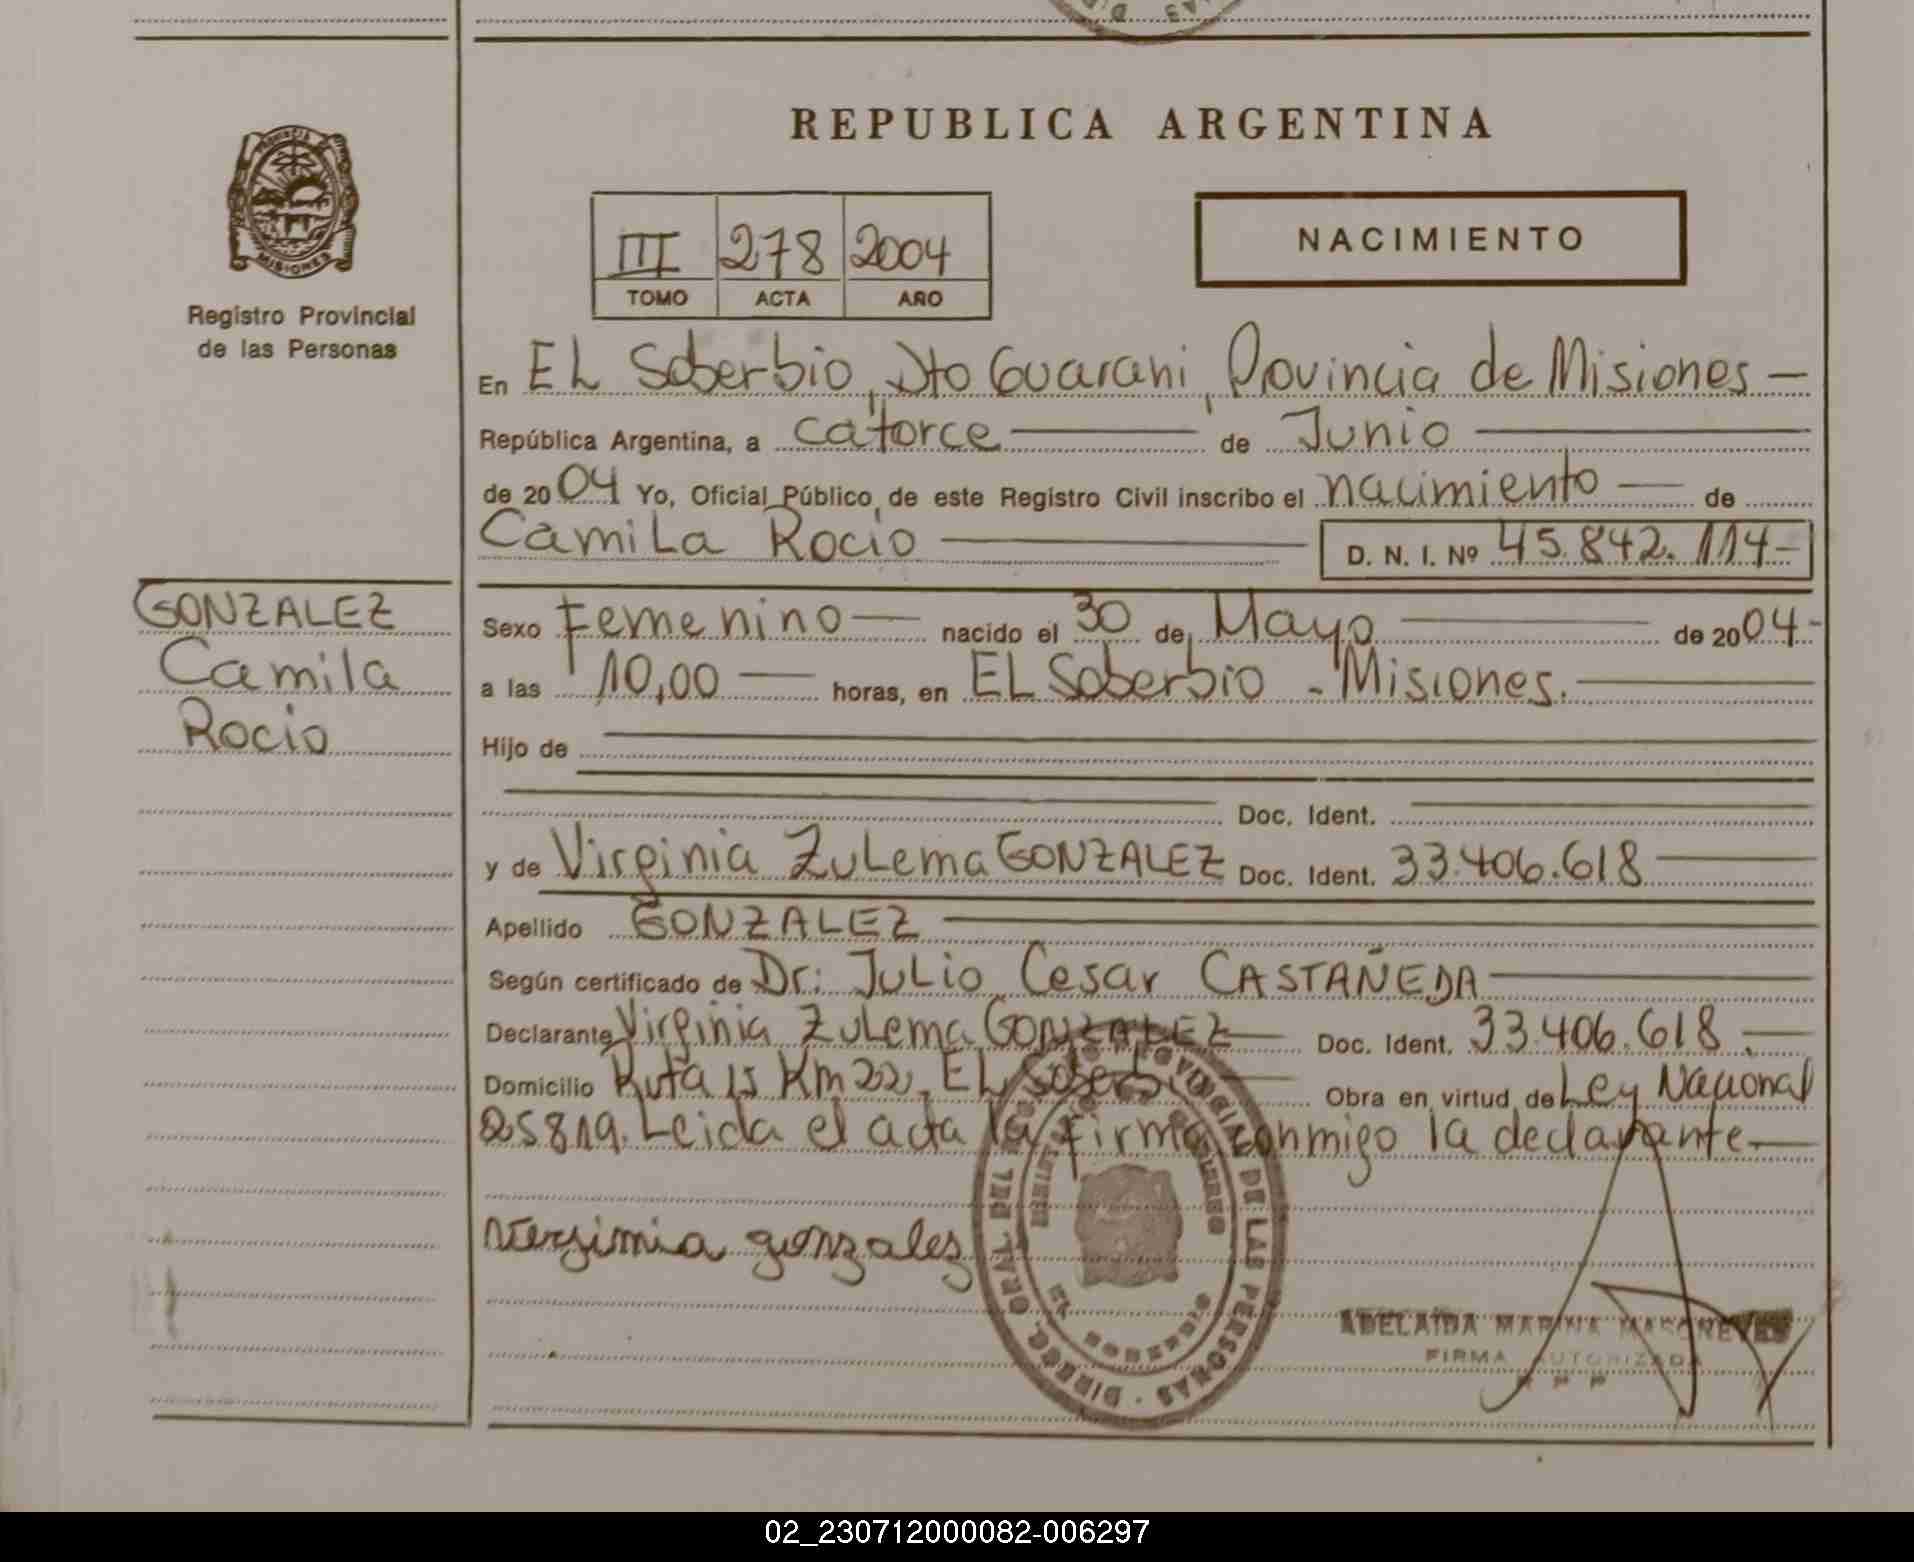 REPUBLICA ARGENTINA
PROVINCIA DE MISIONES
Registro Provincial
de las Personas
III 278 2004
TOMO ACTA AÑO
NACIMIENTO
En EL Soberbio, Dto Guarani, Provincia de Misiones —
República Argentina, a catorce — de Junio —
de 2004 Yo, Oficial Público, de este Registro Civil inscribo el nacimiento — de
Camila Rocio — D. N. I. Nº 45.842.114-
GONZALEZ
Camila
Rocio
Sexo Femenino — nacido el 30 de Mayo — de 2004-
a las 10,00 — horas, en EL Soberbio - Misiones. —
Hijo de
Doc. Ident.
y de Virginia Zulema GONZALEZ Doc. Ident. 33.406.618 —
Apellido GONZALEZ —
Según certificado de Dr: Julio Cesar CASTAÑEDA —
Declarante Virginia Zulema GONZALEZ — Doc. Ident. 33.406.618. —
Domicilio Ruta 15 Km 22, EL Soberbio — Obra en virtud de Ley Nacional
25819. Leida el acta la firma conmigo la declarante —
Verginia gonzalez
DIRECC. GRAL. DEL REGISTRO PROVINCIAL DE LAS PERSONAS
EL SOBERBIO
ADELAIDA MARINA
FIRMA AUTORIZADA
R P P
02_230712000082-006297